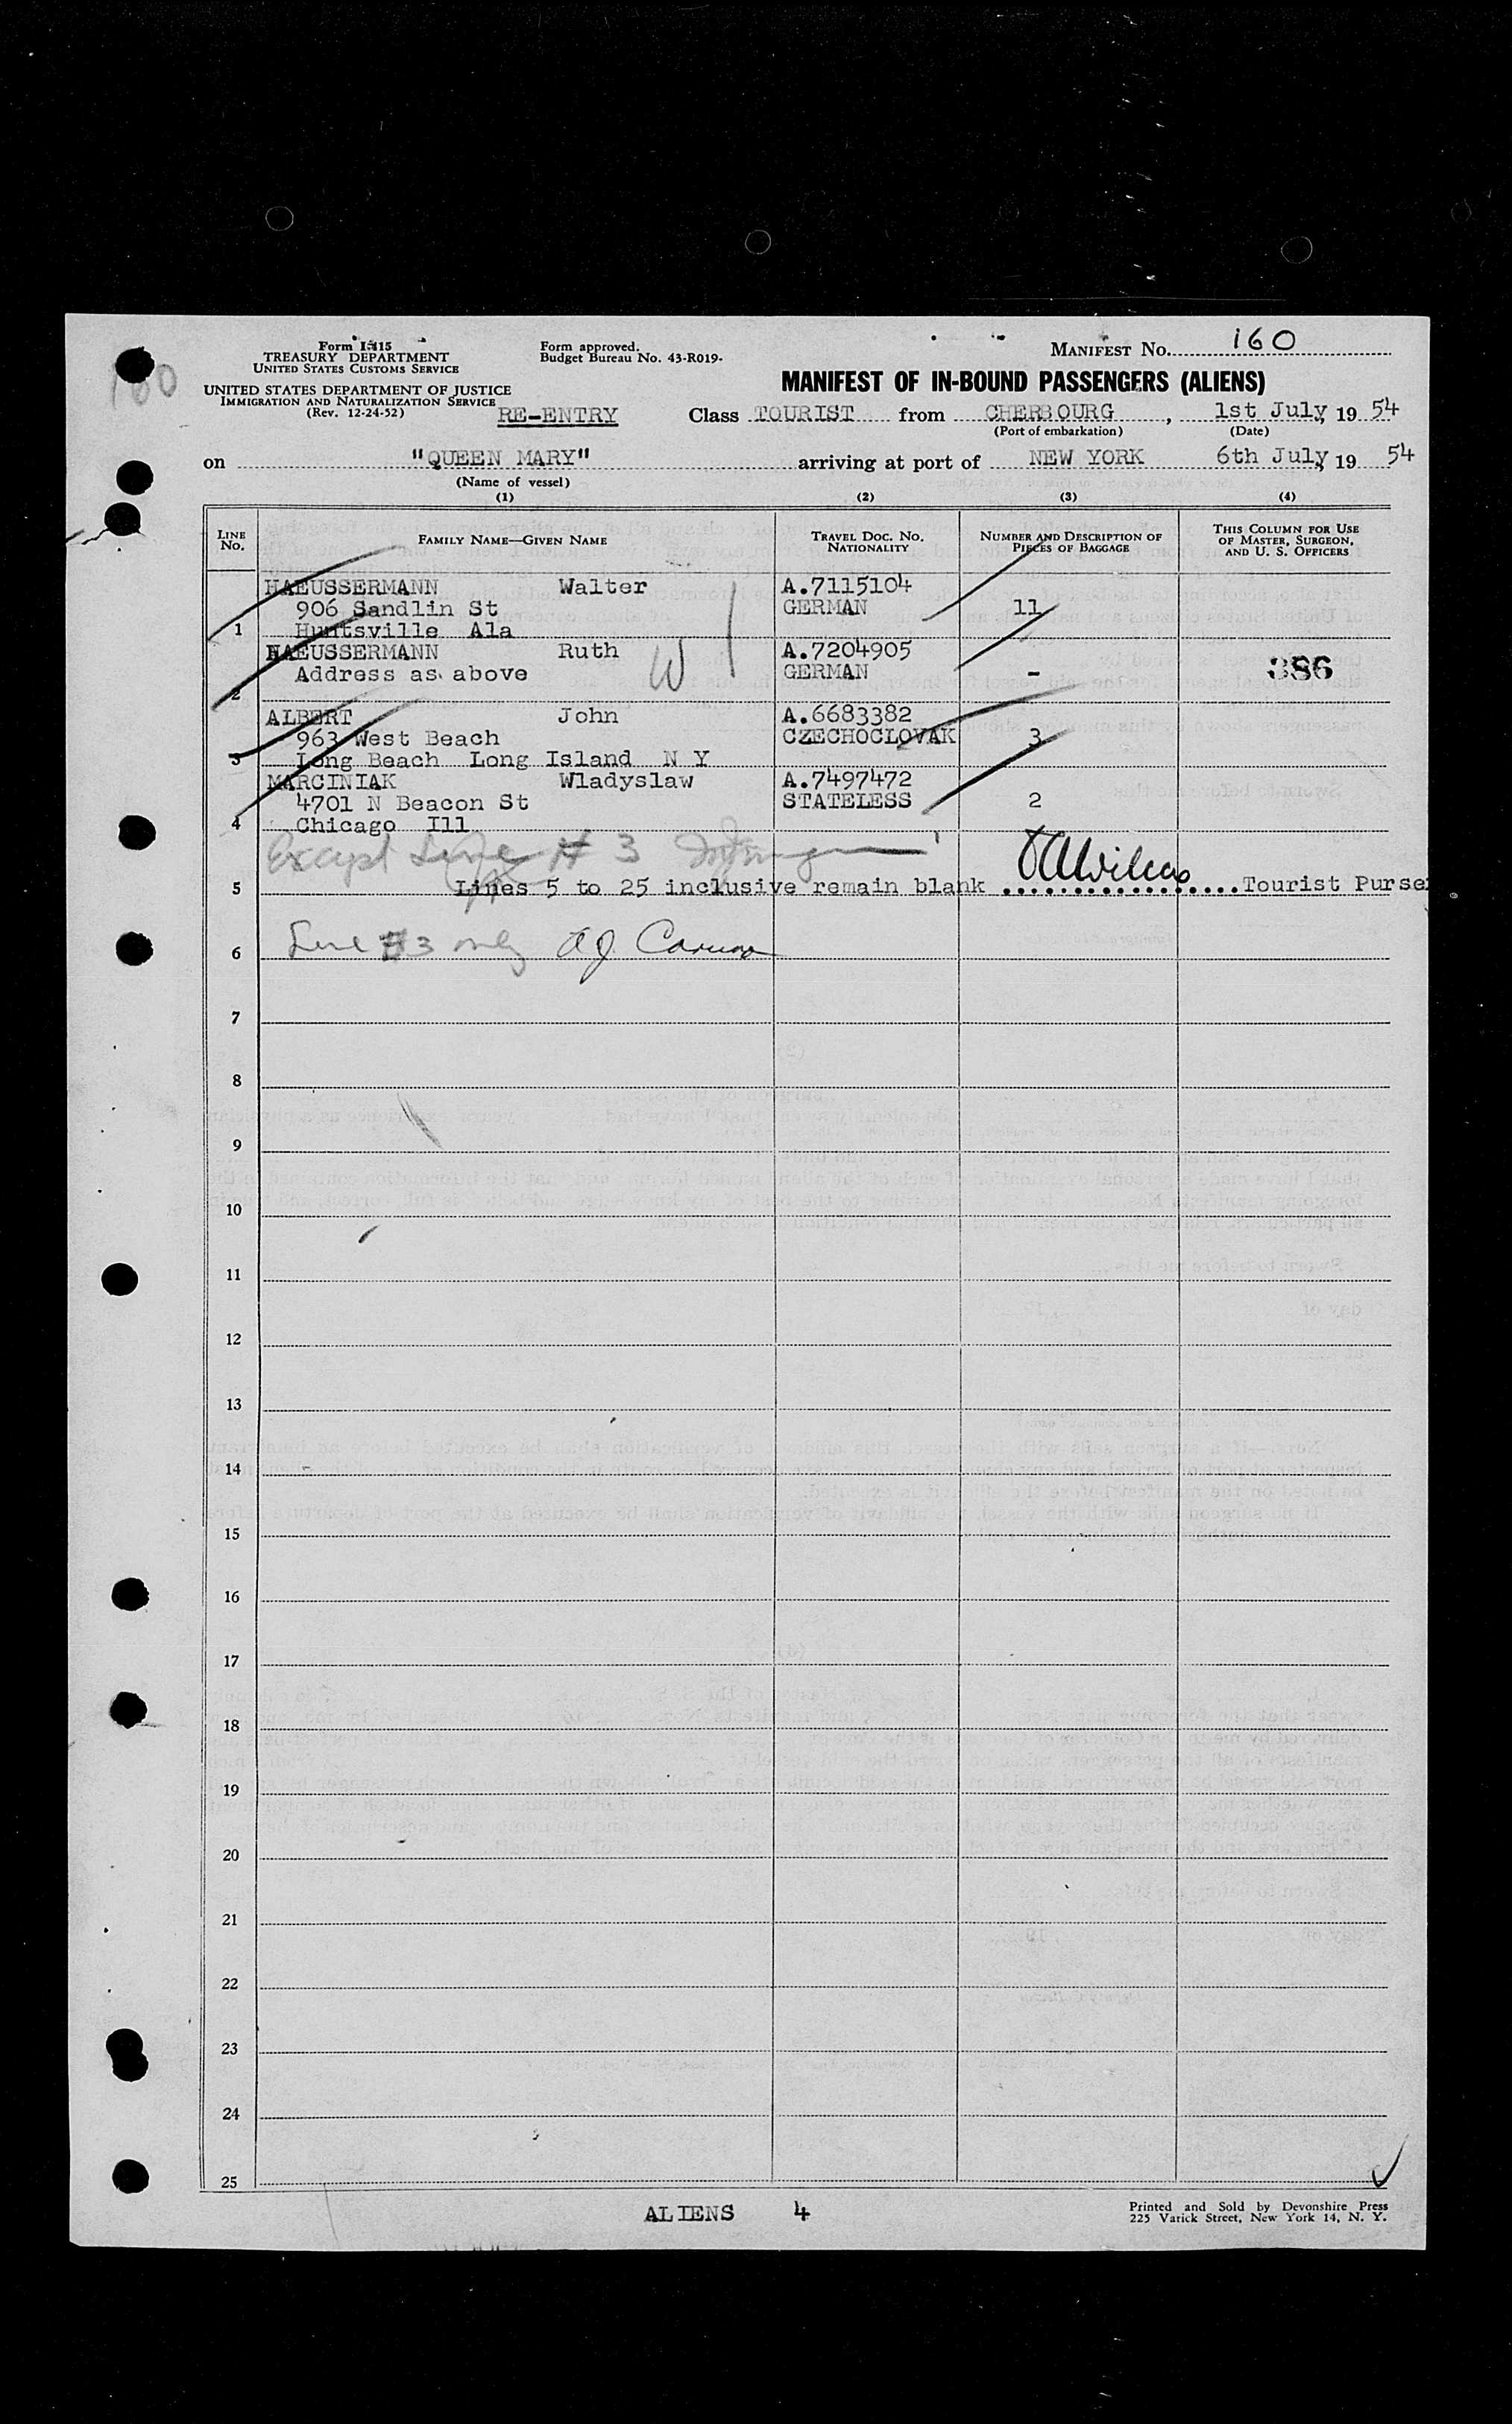 Form I-415
TREASURY DEPARTMENT
UNITED STATES CUSTOMS SERVICE
UNITED STATES DEPARTMENT OF JUSTICE
IMMIGRATION AND NATURALIZATION SERVICE
(Rev. 12-24-52)
Form approved.
Budget Bureau No. 43-R019-
MANIFEST No. 160
160
MANIFEST OF IN-BOUND PASSENGERS (ALIENS)
RE-ENTRY Class TOURIST from CHERBOURG, 1st July, 19 54
(Port of embarkation) (Date)
on "QUEEN MARY" arriving at port of NEW YORK 6th July, 19 54
(Name of vessel)
(1) (2) (3) (4)
LINE No. FAMILY NAME—GIVEN NAME TRAVEL DOC. NO. NATIONALITY NUMBER AND DESCRIPTION OF PIECES OF BAGGAGE THIS COLUMN FOR USE OF MASTER, SURGEON, AND U. S. OFFICERS
HAEUSSERMANN Walter A.7115104
906 Sandlin St GERMAN 11
1 Huntsville Ala
HAEUSSERMANN Ruth W A.7204905
Address as above GERMAN - 386
2
ALBERT John A.6683382
963 West Beach CZECHOCLOVAK 3
3 Long Beach Long Island N Y
MARCINIAK Wladyslaw A.7497472
4701 N Beacon St STATELESS 2
4 Chicago Ill
Except Line # 3
5 Lines 5 to 25 inclusive remain blank Tourist Purse
6 Line #3 only
7
8
9
10
11
12
13
14
15
16
17
18
19
20
21
22
23
24
25
ALIENS 4
Printed and Sold by Devonshire Press
225 Varick Street, New York 14, N. Y.